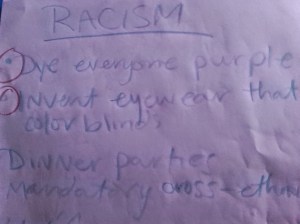 RACISM
• Dye everyone purple
• Invent eyewear that
color blinds
Dinner parties
mandatory cross-ethn